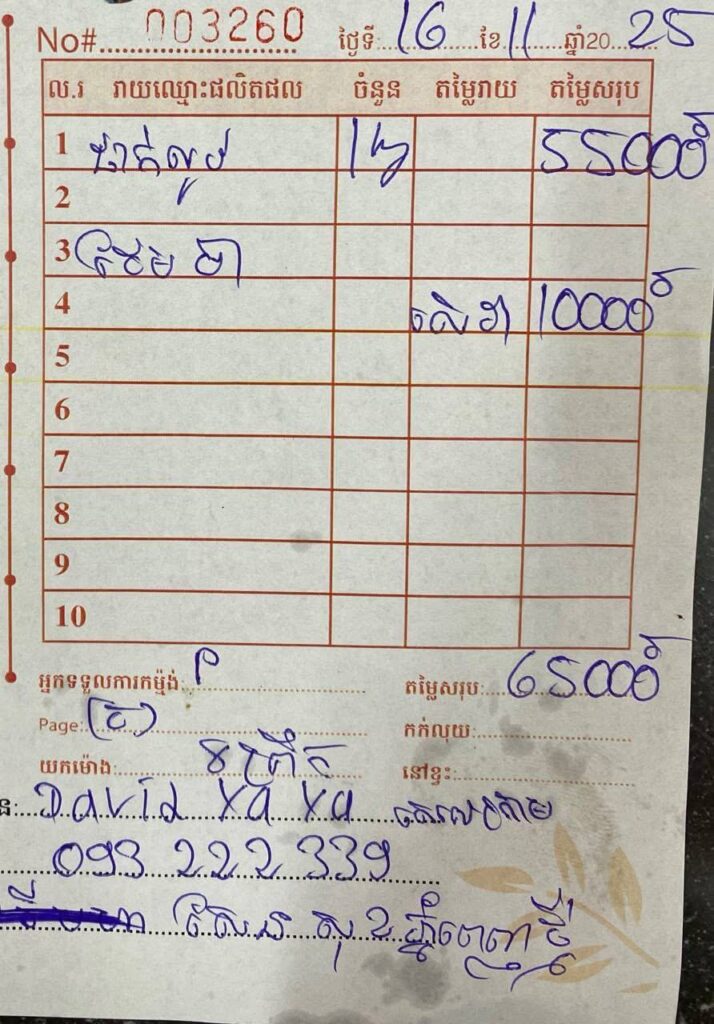 No# 003260 ថ្ងៃទី 16 ខែ 11 ឆ្នាំ20 25
ល.រ រាយឈ្មោះផលិតផល ចំនួន តម្លៃរាយ តម្លៃសរុប
1 55000៛
2
3
4 សេវា 10000៛
5
6
7
8
9
10
អ្នកទទួលការកម្ម៉ង់: P តម្លៃសរុប: 65000៛
Page: កក់លុយ:
យកម៉ោង: ៩ព្រឹក នៅខ្វះ:
David Ya Ya
093 222 339
សែន សុខ ភ្នំពេញថ្មី